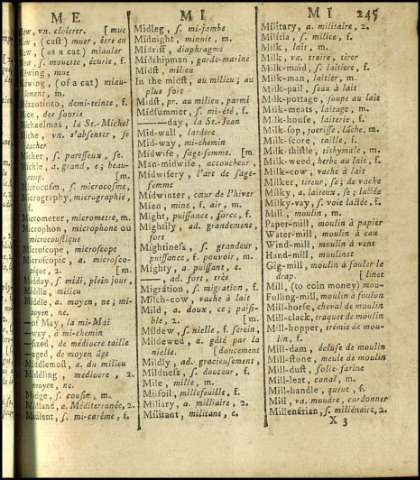 M E
ew, vn. cloîtrer. [mue
ew, (cast) muer, être en
ew, (as a cat) miauler
ew, s. mouette, écurie, f.
ewing, mue
ewing, (of a cat) miau-
lement, m.
ezzotinto, demi-teinte, f.
ice, des souris
ichaelmas, la St.-Michel
iche, vn. s'absenter, se
cacher
icher, s. paresseux, se.
ickle, a. grand, e; beau-
coup. [m.
icrocosm, s. microcosme,
icrography, micrographie,
f.
icrometer, micrometre, m.
icrophon, microphone ou
microcoustique
icroscope, microscope
icroscopic, a. microsco-
pique, 2. [m.
idday, s. midi, plein jour,
iddle, milieu
iddle, a. moyen, ne; mi-
toyen, ne.
—of May, la mi-Mai
—way, à mi-chemin
—sized, de médiocre taille
—aged, de moyen âge
iddlemost, a. du milieu
iddling, médiocre, 2.
moyen, ne.
idge, s. cousin, m.
idland, a. Méditerranée, 2.
idlent, s. mi-carême, f.
M I
Midleg, s. mi-jambe
Midnight, minuit, m.
Midriff, diaphragme
Midshipman, garde-marine
Midst, milieu
In the midst, au milieu; au
plus fort
Midst, pr. au milieu, parmi
Midsummer, s. mi-été, f.
—day, la St.-Jean
Mid-wall, lardoire
Mid-way, mi-chemin
Midwife, sage-femme. [m.
Man-midwife, accoucheur,
Midwifery, l'art de sage-
femme
Midwinter, cœur de l'hiver
Mien, mine, f. air, m.
Might, puissance, force, f.
Mightily, ad. grandement,
fort
Mightiness, s. grandeur,
puissance, f. pouvoir, m.
Mighty, a. puissant, e.
—ad. fort, très
Migration, s. migration, f.
Milch-cow, vache à lait
Mild, a. doux, ce; pais-
ible, 2. [m.
Mildew, s. nielle, f. serein,
Mildewed, a. gâté par la
nielle. [doucement
Mildly, ad. gracieusement,
Mildness, s. douceur, f.
Mile, mille, m.
Milfoil, millefeuille, f.
Miliary, a. milliaire, 2.
Militant, militant, e.
M I 245
Military, a. militaire, 2.
Militia, s. milice, f.
Milk, lait, m.
Milk, va. traire, tirer
Milk-maid, s. laitiere, f.
Milk-man, laitier, m.
Milk-pail, seau à lait
Milk-pottage, soupe au lait
Milk-meats, laitage, m.
Milk-house, laiterie, f.
Milk-sop, jocrisse, lâche, m.
Milk-score, taille, f.
Milk-thistle, tithymale, m.
Milk-weed, herbe au lait, f.
Milk-cow, vache à lait
Milker, tireur, se; de vache
Milky, a. laiteux, se; lactée
Milky-way, s. voie lactée, f.
Mill, moulin, m.
Paper-mill, moulin à papier
Water-mill, moulin à eau
Wind-mill, moulin à vent
Hand-mill, moulinet
Gig-mill, moulin à fouler le
drap. [linet
Mill, (to coin money) mou-
Fulling-mill, moulin à foulon
Mill-horse, cheval de moulin
Mill-clack, traquet de moulin
Mill-hopper, trémie de mou-
lin, f.
Mill-dam, écluse de moulin
Mill-stone, meule de moulin
Mill-dust, folle-farine
Mill-leat, canal, m.
Mill-handle, queue, f.
Mill, va. moudre, cordonner
Millenarian, s. millénaire, 2.
X 3